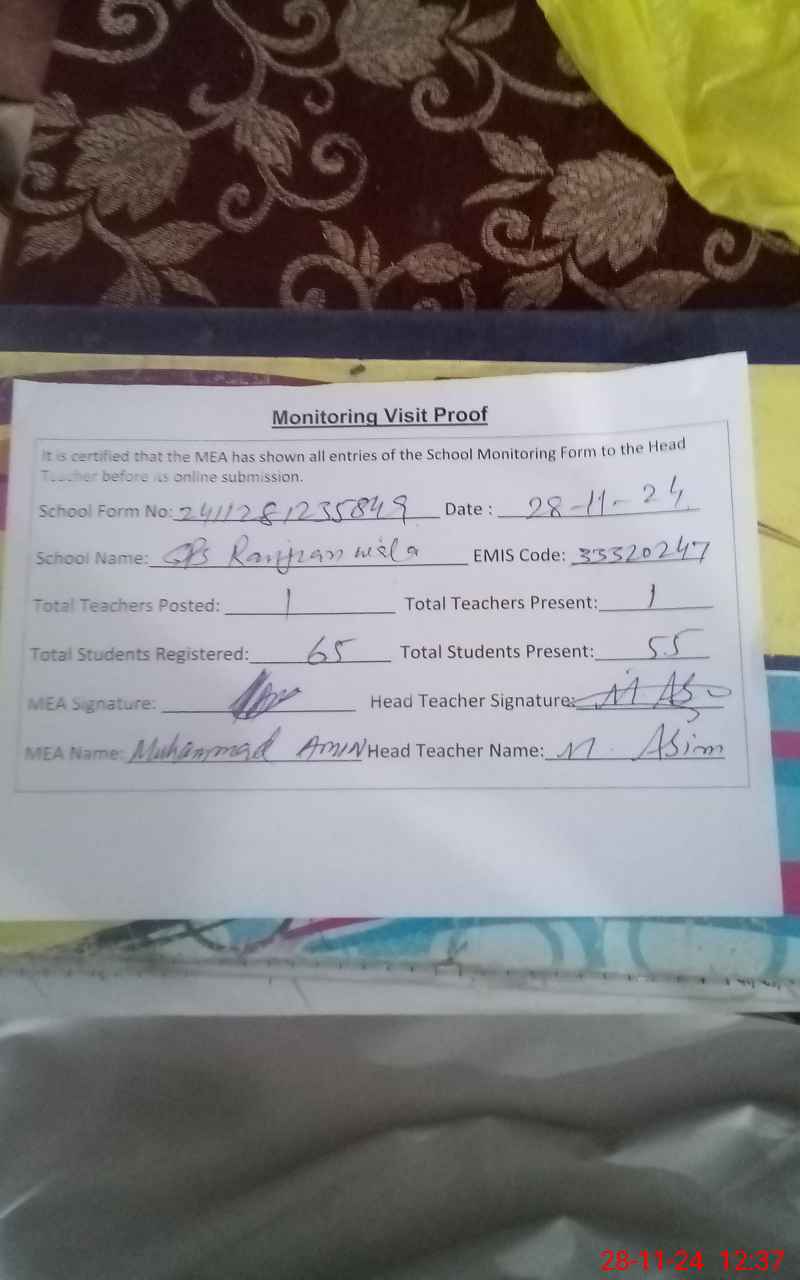 Monitoring Visit Proof
It is certified that the MEA has shown all entries of the School Monitoring Form to the Head
Teacher before its online submission.
School Form No: 2411281235849 Date : 28-11-24
School Name: GPS Ranjhanwala EMIS Code: 33320247
Total Teachers Posted: 1 Total Teachers Present: 1
Total Students Registered: 65 Total Students Present: 55
MEA Signature: Head Teacher Signature: M. As
MEA Name: Muhammad AMIN Head Teacher Name: M. Asim
28-11-24 12:37